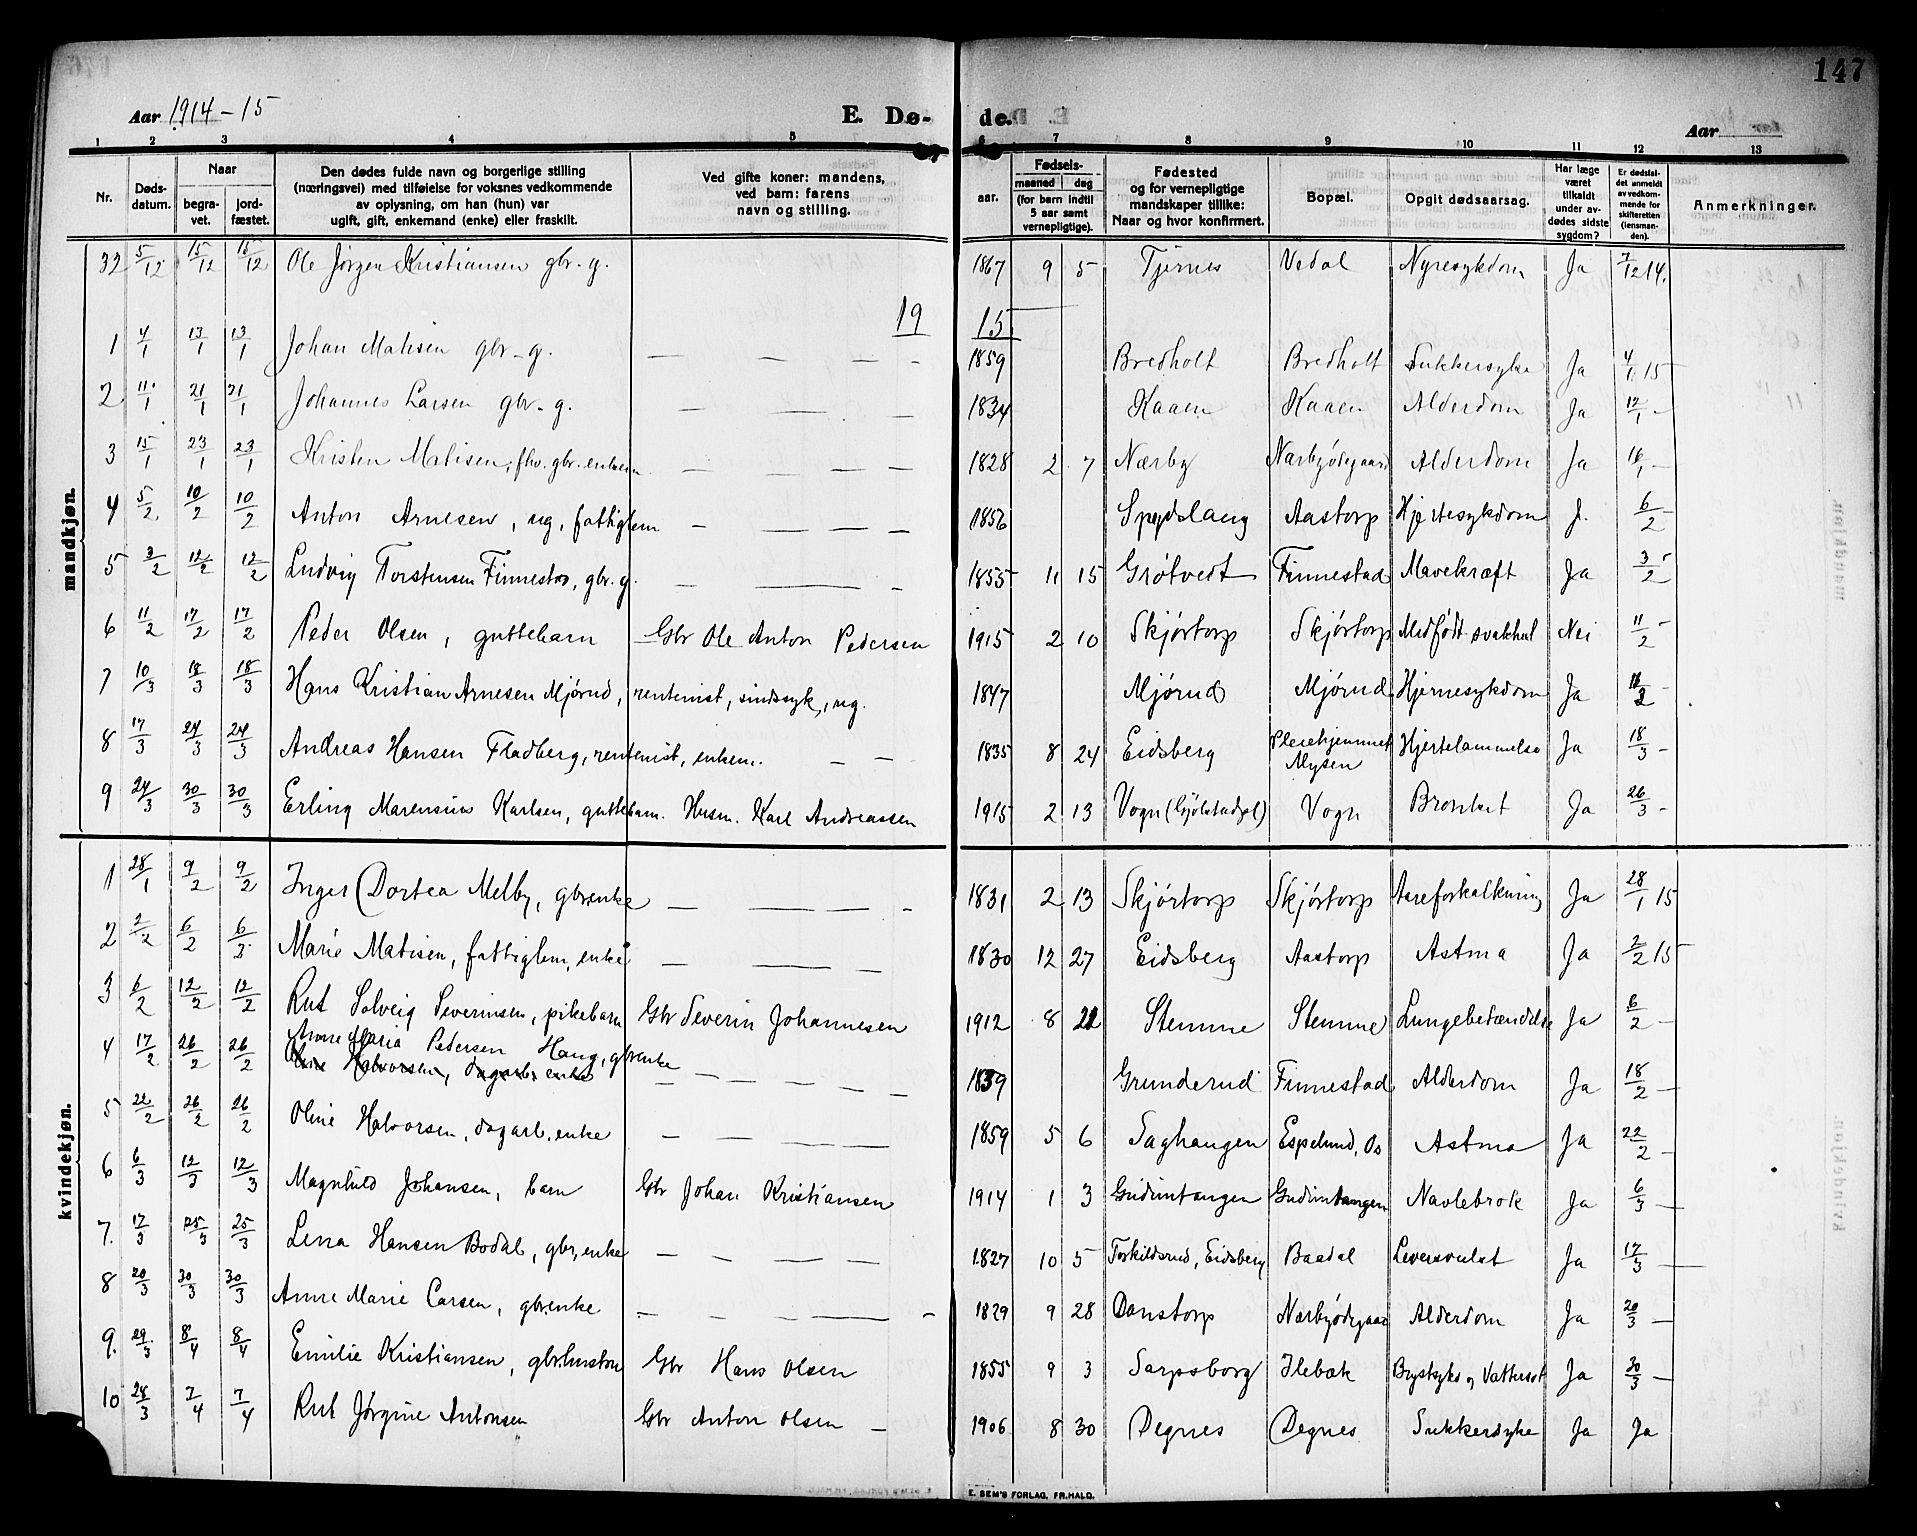 147
Aar 1914-15 E. Dø- de. Aar
1 2 3 4 5 6 7 8 9 10 11 12 13
Nr. Døds-datum. Naar begra-vet. jord-fæstet. Den dødes fulde navn og borgerlige stilling (næringsvei) med tilføielse for voksnes vedkommende av oplysning, om han (hun) var ugift, gift, enkemand (enke) eller fraskilt. Ved gifte koner: mandens, ved barn: farens navn og stilling. Fødsels- aar. maaned dag (for barn indtil 5 aar samt vernepligtige). Fødested og for vernepligtige mandskaper tillike: Naar og hvor konfirmert. Bopæl. Opgit dødsaarsag. Har læge været tilkaldt under av-dødes sidste sygdom? Er dødsfal-det anmeldt av vedkom-mende for skifteretten (lensman-den). Anmerkninger.
mandkjøn.
32 5/12 15/12 15/12 Ole Jørgen Kristiansen gbr. g. 1867 9 5 Tjernes Vedal Nyresykdom Ja 7/12 14.
19 15
1 4/1 13/1 13/1 Johan Matisen gbr. g. — — - 1859 Bredholt Bredholt Sukkersyke Ja 4/1 15
2 11/1 21/1 21/1 Johannes Larsen gbr. g. — — — 1834 Kaaen Kaaen Alderdom Ja 12/1 -
3 15/1 23/1 23/1 Kristen Matisen, fhv. gbr. enkem. — — — 1828 2 7 Nærby Nærbyødegaard Alderdom Ja 16/1 —
4 5/2 10/2 10/2 Anton Arnesen, ug, fattiglem — — — 1856 Spydslaug Aastorp Hjertesykdom J. 6/2 -
5 3/2 12/2 12/2 Ludvig Torstensen Finnestad, gbr. g. — — - 1855 11 15 Grøtvedt Finnestad Mavekræft Ja 3/2 -
6 11/2 17/2 17/2 Peder Olsen, guttebarn Gbr Ole Anton Pedersen 1915 2 10 Skjørtorp Skjørtorp Medfødt svakhet Nei 11/2 -
7 10/3 18/3 18/3 Hans Kristian Arnesen Mjørud, rentenist, sindssyk, ug. 1847 Mjørud Mjørud Hjernesykdom Ja -
8 17/3 24/3 24/3 Andreas Hansen Fladberg, rentenist, enkem. — — 1835 8 24 Eidsberg Pleiehjemmet Mysen Hjertelammelse Ja 18/3 -
9 24/3 30/3 30/3 Erling Marensius Karlsen, guttebarn. Husm. Karl Andreassen 1915 2 13 Vogn (Gjølstadpl) Vogn Bronkit Ja 26/3 -
kvindekjøn.
1 28/1 9/2 9/2 Inger Dortea Melby, gbr.enke — — — - 1831 2 13 Skjørtorp Skjørtorp Aareforkalkning Ja 28/1 15
2 2/2 6/2 6/3 Marie Matisen, fattiglem, enke — — — 1830 12 27 Eidsberg Aastorp Astma Ja 2/2 15
3 6/2 12/2 12/2 Rut Solveig Severinsen, pikebarn Gbr Severin Johannesen 1912 8 21 Stemme Stemme Lungebetændelse Ja 6/2 —
4 17/2 26/2 26/2 Anne Maria Pedersen Haug, gbrenke
Oline Halvorsen, dagarb. enke — — — — — 1839 Grunderud Finnestad Alderdom Ja 18/2 —
5 22/2 26/2 26/2 Oline Halvorsen, dagarb. enke — — — — 1859 5 6 Saghaugen Espelund, Os Astma Ja 22/2 —
6 6/3 12/3 12/3 Magnhild Johansen, barn Gbr Johan Kristiansen 1914 1 3 Gudimtangen Gudimtangen Navlebrok Ja 6/3 —
7. 17/3 25/3 25/3 Lena Hansen Bodal, gbr, enke — — — — 1827 10 5 Torkildsrud, Eidsberg Baadal Leversvulst Ja 17/3 —
8 20/3 30/3 30/3 Anne Marie Larsen, gbr.enke — — — — - 1829 9 28 Danstorp Nærbyødegaar Alderdom Ja 20/3 —
9. 29/3 8/4 8/4 Emilie Kristiansen, gbr.hustru Gbr Hans Olsen 1855 9 3 Sarpsborg Ilebæk Brystsyke og Vattersot Ja 30/3 —
10 28/3 7/4 7/4 Rut Jørgine Antonsen Gbr Anton Olsen — 1906 8 30 Degnes Degnes Sukkersyke Ja Ja
E. SEM'S FORLAG, FR.HALD.